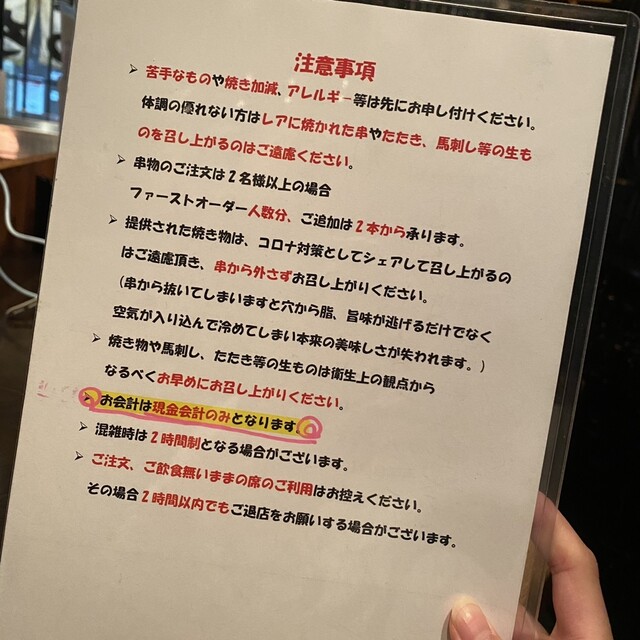 注意事項
➢ 苦手なものや焼き加減、アレルギー等は先にお申し付けください。
体調の優れない方はレアに焼かれた串やたたき、馬刺し等の生も
のを召し上がるのはご遠慮ください。
➢ 串物のご注文は2名様以上の場合
ファーストオーダー人数分、ご追加は2本から承ります。
➢ 提供された焼き物は、コロナ対策としてシェアして召し上がるの
はご遠慮頂き、串から外さずお召し上がりください。
(串から抜いてしまいますと穴から脂、旨味が逃げるだけでなく
空気が入り込んで冷めてしまい本来の美味しさが失われます。)
➢ 焼き物や馬刺し、たたき等の生ものは衛生上の観点から
なるべくお早めにお召し上がりください。
➢ お会計は現金会計のみとなります。
➢ 混雑時は2時間制となる場合がございます。
➢ ご注文、ご飲食無いままの席のご利用はお控えください。
その場合2時間以内でもご退店をお願いする場合がございます。